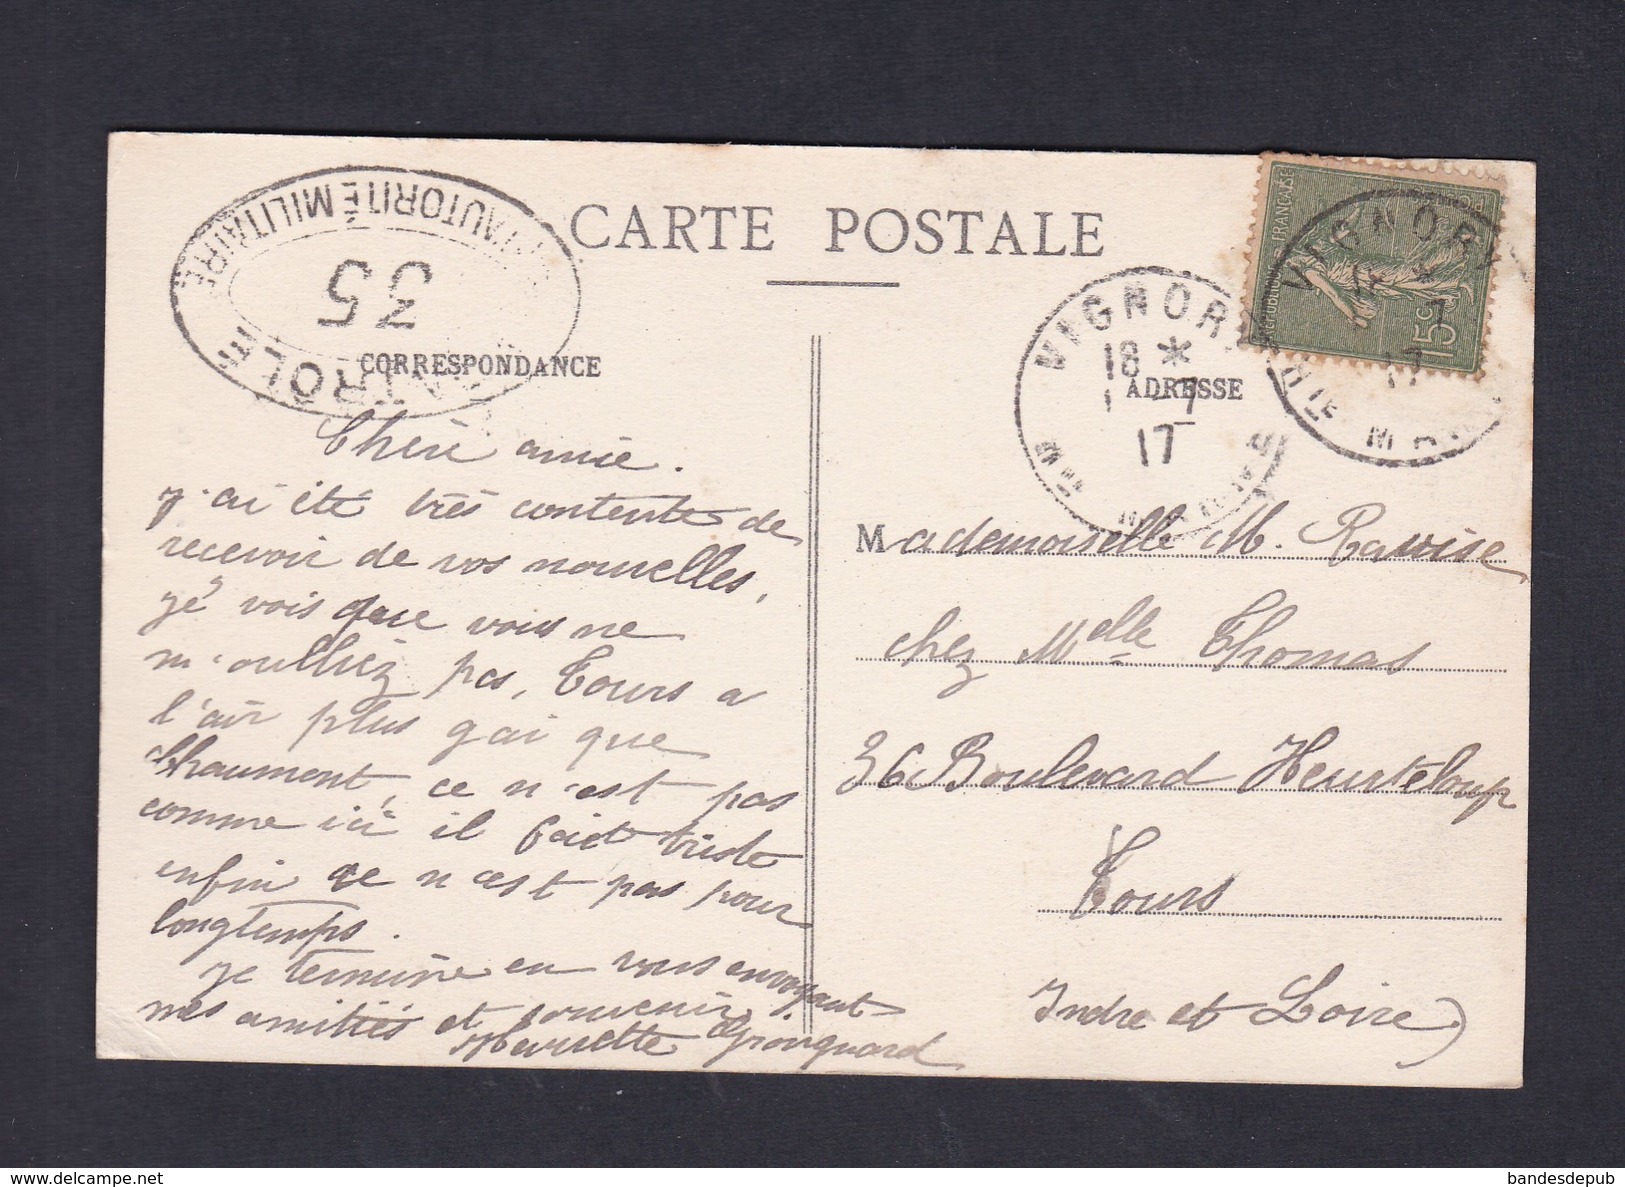 CARTE POSTALE
CONTRÔLÉ
PAR L'AUTORITÉ MILITAIRE
35
CORRESPONDANCE
Chère amie.
j'ai été très contente de
recevoir de vos nouvelles,
je vois que vous ne
m'oulliez pas, Tours a
l'air plus gai que
Chaumont, ce n'est pas
comme ici il fait triste
enfin ce n'est pas pour
longtemps.
je termine en vous envoyant
mes amitiés et souvenir
Henriette
ADRESSE
VIGNORY
18 *
1 -7
17
HTE MARNE
VIGNORY
17
HTE MARNE
RÉPUBLIQUE FRANÇAISE
15c
POSTES
Mademoiselle M. Ravise
chez Melle Thomas
36 Boulevard Heurteloup
Tours
Indre et Loire)
delcampe.net
bandesdepub